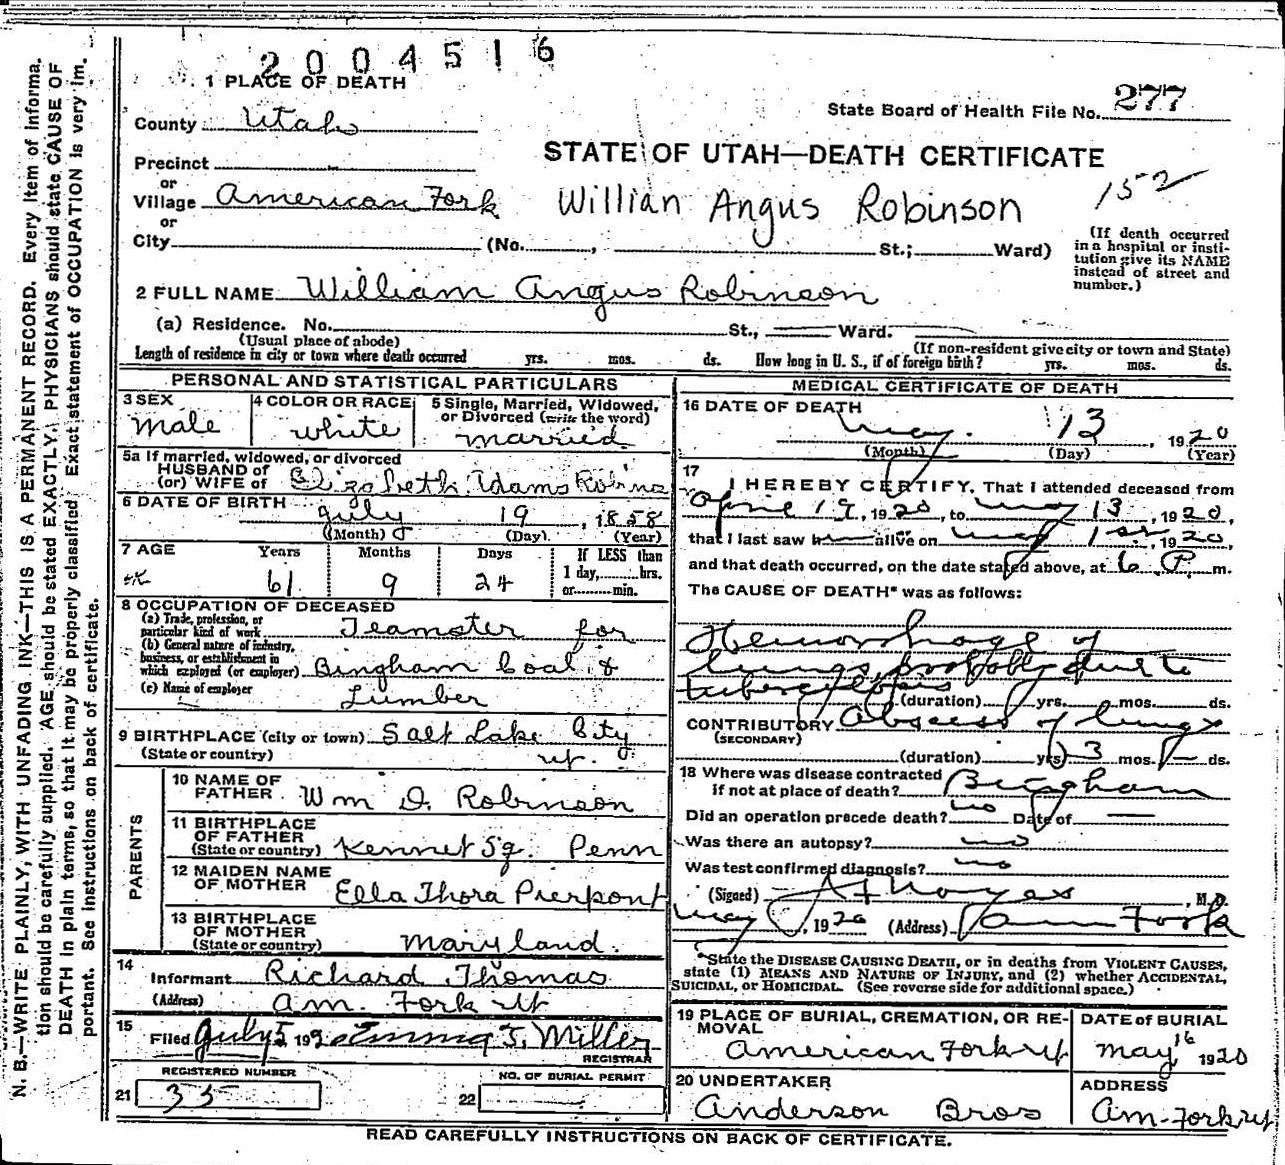 2004516
1 PLACE OF DEATH
State Board of Health File No. 277
County Utah
STATE OF UTAH—DEATH CERTIFICATE
Precinct
or
Village American Fork
Willian Angus Robinson
152
or
City (No. , St.; Ward)
(If death occurred
in a hospital or insti-
tution give its NAME
instead of street and
number.)
2 FULL NAME William Angus Robinson
(a) Residence. No. St., Ward.
(Usual place of abode) (If non-resident give city or town and State)
Length of residence in city or town where death occurred yrs. mos. ds. How long in U. S., if of foreign birth? yrs. mos. ds.
PERSONAL AND STATISTICAL PARTICULARS
3 SEX
Male
4 COLOR OR RACE
White
5 Single, Married, Widowed,
or Divorced (write the word)
married
5a If married, widowed, or divorced
HUSBAND of
(or) WIFE of Elizabeth Adams Robins
6 DATE OF BIRTH
July 19, 1858
(Month) (Day) (Year)
7 AGE Years Months Days If LESS than
1 day, hrs.
or min.
61 9 24
8 OCCUPATION OF DECEASED
(a) Trade, profession, or
particular kind of work Teamster for
(b) General nature of industry,
business, or establishment in
which employed (or employer) Bingham Coal &
(c) Name of employer Lumber
9 BIRTHPLACE (city or town) Salt Lake City
(State or country) ut.
PARENTS
10 NAME OF
FATHER Wm D. Robinson
11 BIRTHPLACE
OF FATHER
(State or country) Kennet Sq. Penn
12 MAIDEN NAME
OF MOTHER Ella Thora Pierpont
13 BIRTHPLACE
OF MOTHER
(State or country) Maryland.
14
Informant Richard Thomas
(Address) Am. Fork Ut
15
Filed July 5, 192 Emma J. Miller
REGISTRAR
REGISTERED NUMBER
21 35
NO. OF BURIAL PERMIT
22
MEDICAL CERTIFICATE OF DEATH
16 DATE OF DEATH
May. 13, 1920
(Month) (Day) (Year)
17
I HEREBY CERTIFY, That I attended deceased from
April 19, 1920, to May 13, 1920,
that I last saw h alive on May 1st, 1920,
and that death occurred, on the date stated above, at 6 P. m.
The CAUSE OF DEATH* was as follows:
Hemorrhage of
lungs, probably due to
tuberculosis
(duration) yrs. mos. ds.
CONTRIBUTORY Abscess of lungs
(SECONDARY)
(duration) yrs. 3 mos. — ds.
18 Where was disease contracted
if not at place of death? Bingham
Did an operation precede death? no Date of —
Was there an autopsy? no
Was test confirmed diagnosis? no
(Signed) Noyes, M.D.
May, 1920 (Address) Am Fork
*State the DISEASE CAUSING DEATH, or in deaths from VIOLENT CAUSES,
state (1) MEANS AND NATURE OF INJURY, and (2) whether ACCIDENTAL,
SUICIDAL, or HOMICIDAL. (See reverse side for additional space.)
19 PLACE OF BURIAL, CREMATION, OR RE-
MOVAL
American Fork Ut
DATE of BURIAL
May 16 1920
20 UNDERTAKER
Anderson Bros
ADDRESS
Am. Fork Ut
READ CAREFULLY INSTRUCTIONS ON BACK OF CERTIFICATE.
N. B.—WRITE PLAINLY, WITH UNFADING INK—THIS IS A PERMANENT RECORD. Every item of informa-
tion should be carefully supplied. AGE should be stated EXACTLY. PHYSICIANS should state CAUSE OF
DEATH in plain terms, so that it may be properly classified. Exact statement of OCCUPATION is very im-
portant. See instructions on back of certificate.